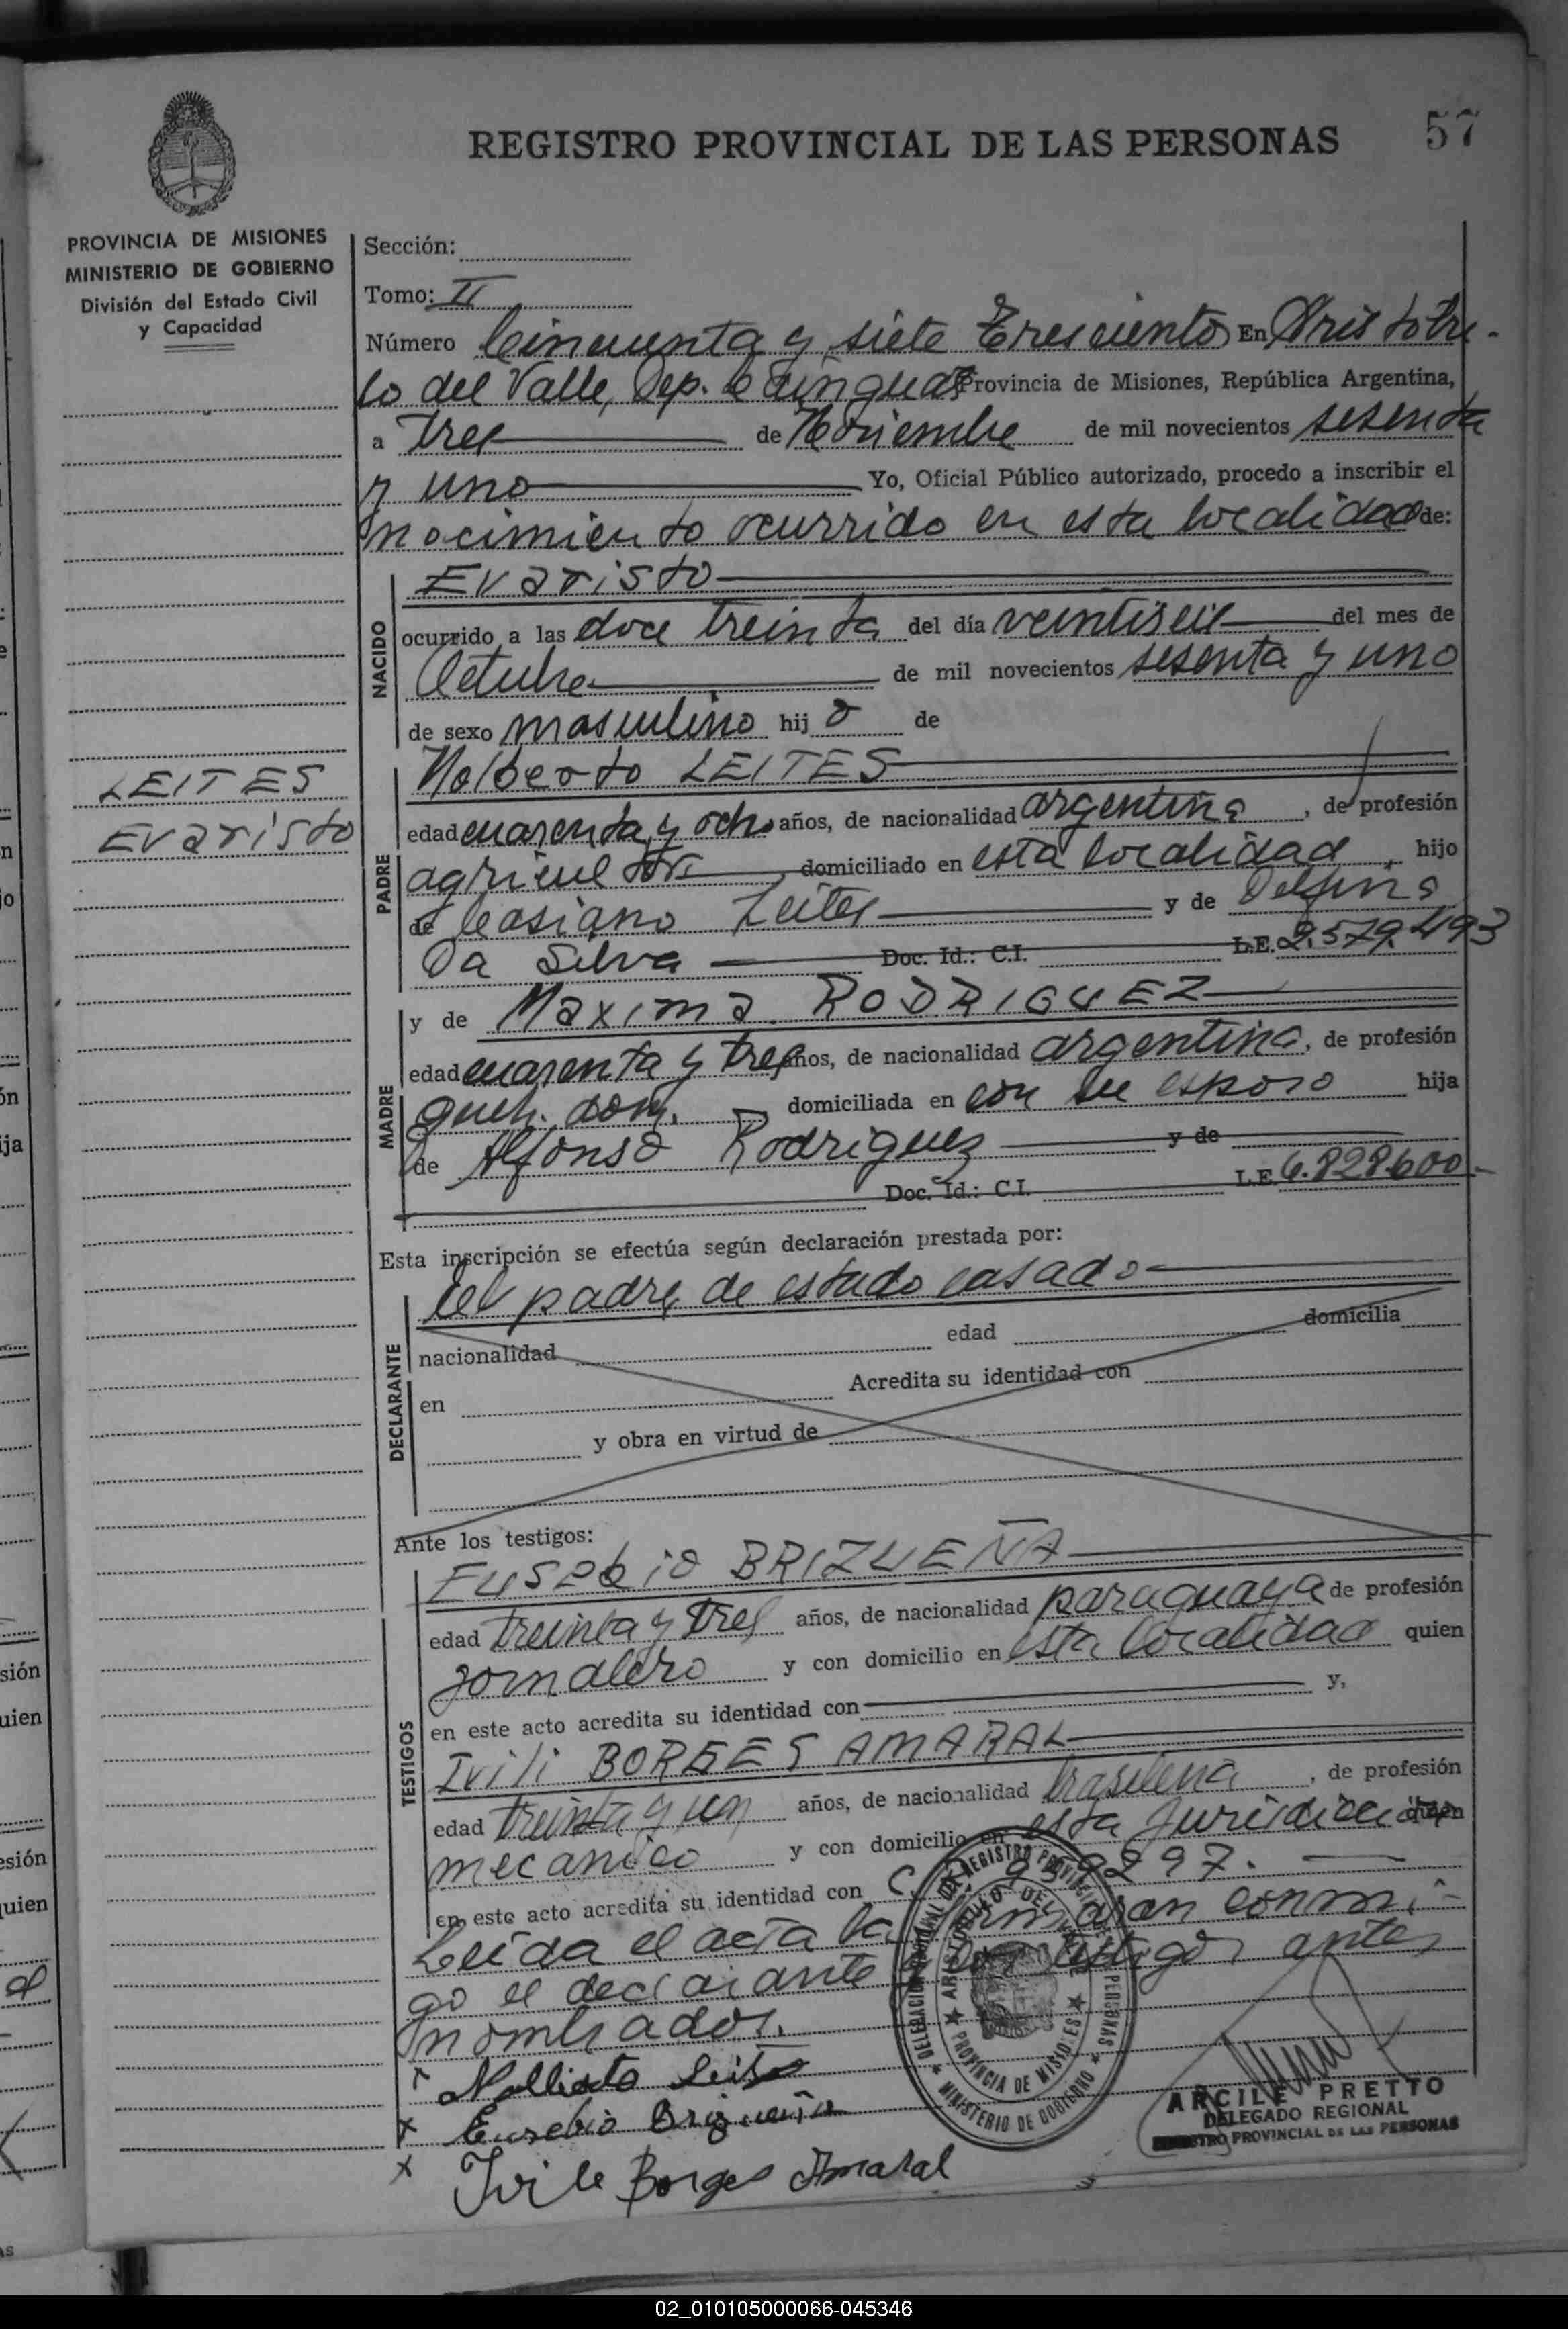 57
REGISTRO PROVINCIAL DE LAS PERSONAS
PROVINCIA DE MISIONES
MINISTERIO DE GOBIERNO
División del Estado Civil
y Capacidad
LEITES
Evaristo
Sección:
Tomo: II
Número Cincuenta y siete Trescientos En Aristobu-
lo del Valle, Dep. Cainguas Provincia de Misiones, República Argentina,
a Tres de Noviembre de mil novecientos sesenta
y uno Yo, Oficial Público autorizado, procedo a inscribir el
nacimiento ocurrido en esta localidad de:
NACIDO
Evaristo
ocurrido a las doce treinta del día veintiseis del mes de
Octubre de mil novecientos sesenta y uno
de sexo masculino hijo de
PADRE
Nolberto LEITES
edad cuarenta y ocho años, de nacionalidad argentina, de profesión
agricultor domiciliado en esta localidad, hijo
de Casiano Leites y de Delfina
Da Silva Doc. Id.: C.I. L.E. 2.579.493
MADRE
y de Maxima RODRIGUEZ
edad cuarenta y tres años, de nacionalidad argentina, de profesión
queh. dom. domiciliada en con su esposo hija
de Alfonso Rodriguez y de
Doc. Id.: C.I. L.E. 6.828.600-
Esta inscripción se efectúa según declaración prestada por:
DECLARANTE
el padre de estado casado
nacionalidad edad domicilia
en Acredita su identidad con
y obra en virtud de
Ante los testigos:
TESTIGOS
Eusebio BRIZUEÑA
edad treinta y tres años, de nacionalidad paraguaya de profesión
jornalero y con domicilio en esta localidad quien
en este acto acredita su identidad con y,
Ivili BORGES AMARAL
edad treinta y un años, de nacionalidad brasilena, de profesión
mecanico y con domicilio en esta Jurisdiccion quien
en este acto acredita su identidad con C.I. 959297.
Leida el acta la firmaran conmi-
go el declarante y los testigos antes
nombrados.
x Nolberto Leites
x Eusebio Brizueña
x Ivile Borges Amaral
DELEGACION REGIONAL DEL REGISTRO PROVINCIAL DE LAS PERSONAS
ARISTOBULO DEL VALLE
PROVINCIA DE MISIONES
MINISTERIO DE GOBIERNO
ARCILE PRETTO
DELEGADO REGIONAL
REGISTRO PROVINCIAL DE LAS PERSONAS
02_010105000066-045346